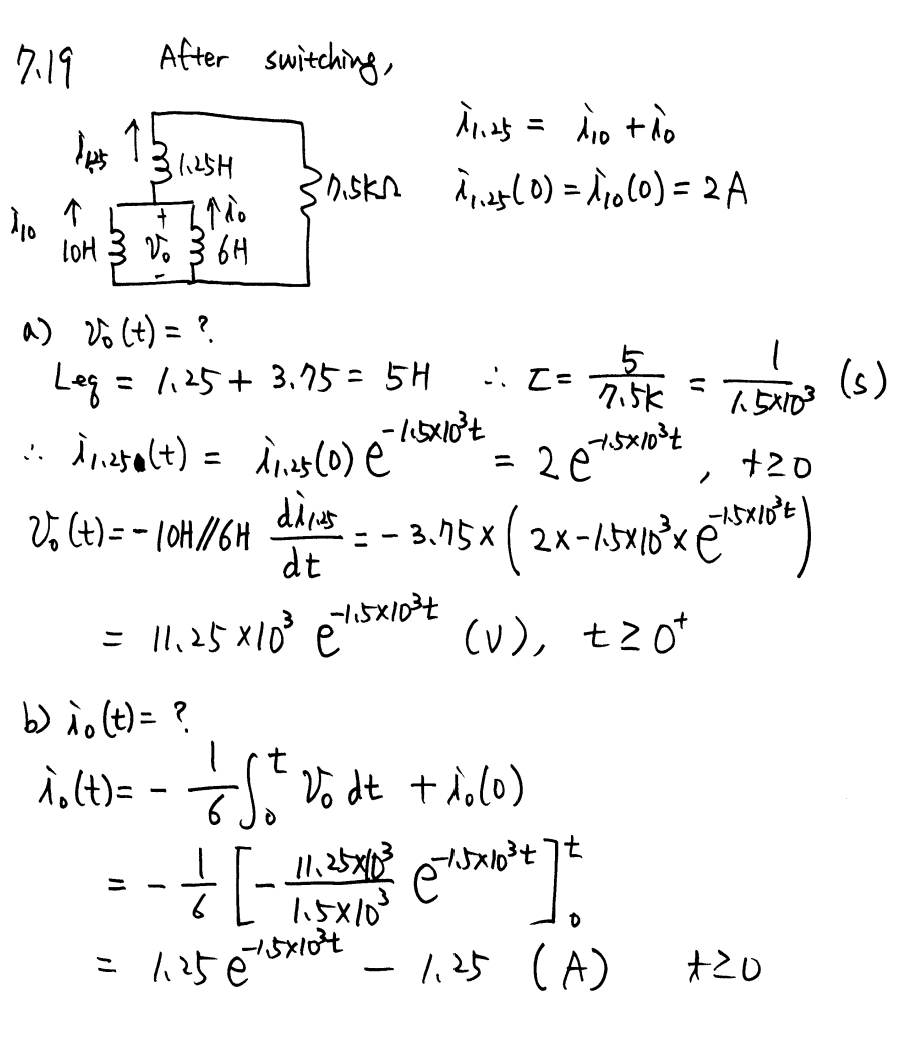 7.19 After switching,
i1.25 = i10 + i0
i1.25(0) = i10(0) = 2A
i1.25 1.25H 7.5kΩ
i10 10H + v0 - i0 6H
a) v0(t) = ?
Leq = 1.25 + 3.75 = 5H ∴ τ = 5/7.5k = 1/1.5×10³ (s)
∴ i1.25(t) = i1.25(0) e^-1.5×10³t = 2e^-1.5×10³t, t≥0
v0(t) = -10H//6H di1.25/dt = -3.75×(2×-1.5×10³×e^-1.5×10³t)
= 11.25×10³ e^-1.5×10³t (V), t≥0⁺
b) i0(t) = ?
i0(t) = -1/6 ∫₀ᵗ v0 dt + i0(0)
= -1/6 [-11.25×10³/1.5×10³ e^-1.5×10³t]₀ᵗ
= 1.25e^-1.5×10³t - 1.25 (A) t≥0